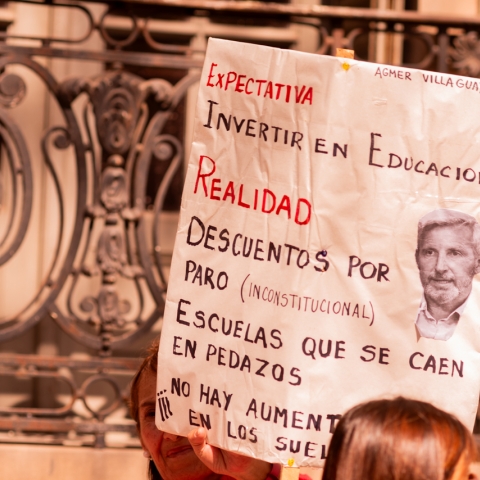 AGMER VILLAGUA
EXPECTATIVA
INVERTIR EN EDUCACION
REALIDAD
DESCUENTOS POR
PARO (INCONSTITUCIONAL)
ESCUELAS QUE SE CAEN
EN PEDAZOS
¡¡¡NO HAY AUMENT
EN LOS SUEL